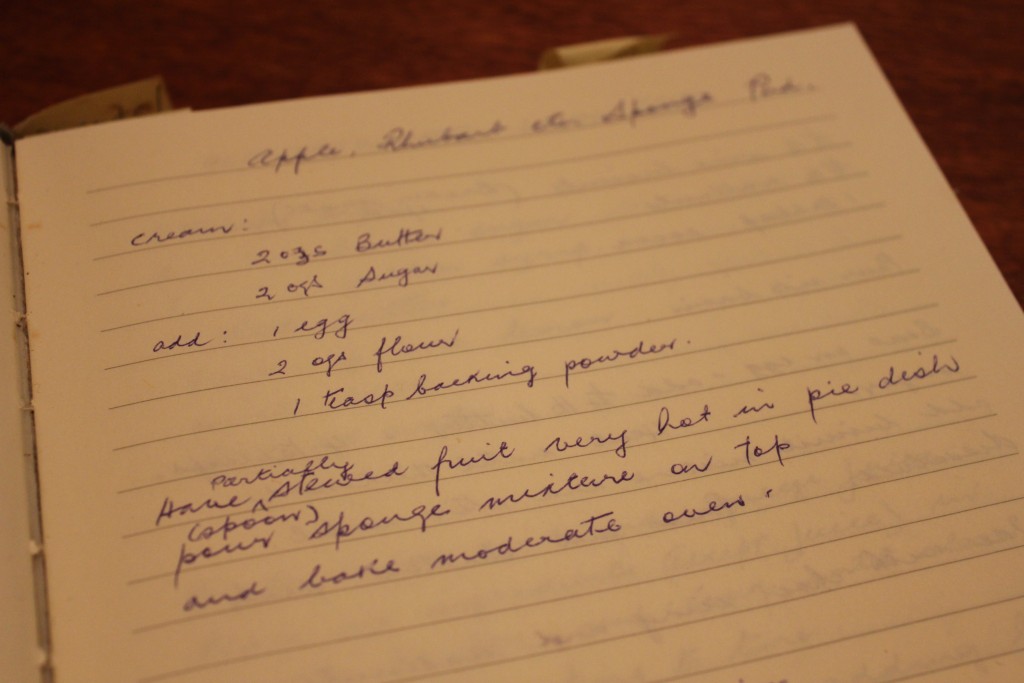 Apple, Rhubarb etc. Sponge Pud.
cream:
2 ozs Butter
2 ozs Sugar
add: 1 egg
2 ozs flour
1 teasp backing powder.
Partially
Have ^ stewed fruit very hot in pie dish
(spoon)
pour sponge mixture on top
and bake moderate oven.